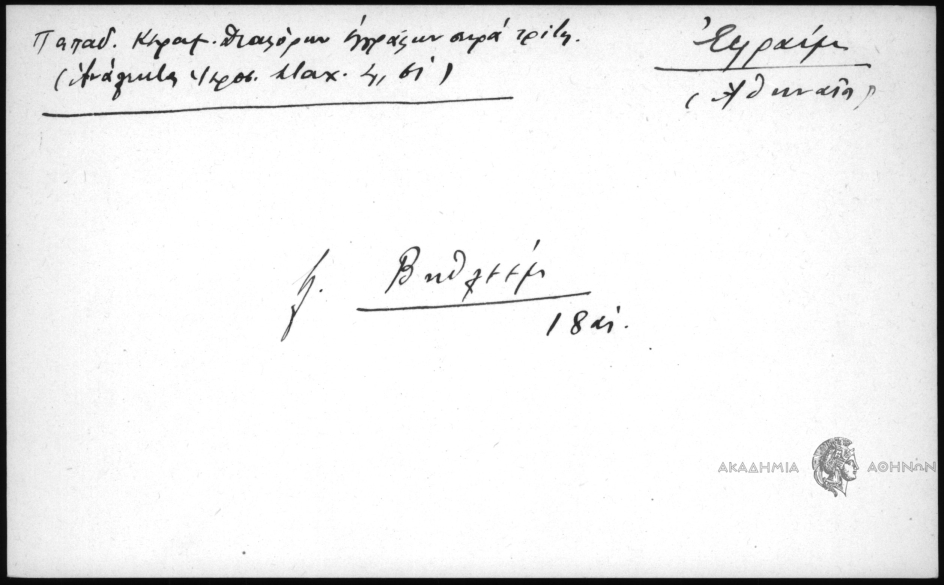 Παπαδ. Κεραμ. διαφόρων ἐγγράφων σειρά τρίτη.
(Ἀνάλεκτα Ἱεροσ. Σταχ. Δ,
Ἐφραίμ
(Ἀθηναῖος)
Βηθλεέμ
18 αἰ.
ΑΚΑΔΗΜΙΑ ΑΘΗΝΩΝ